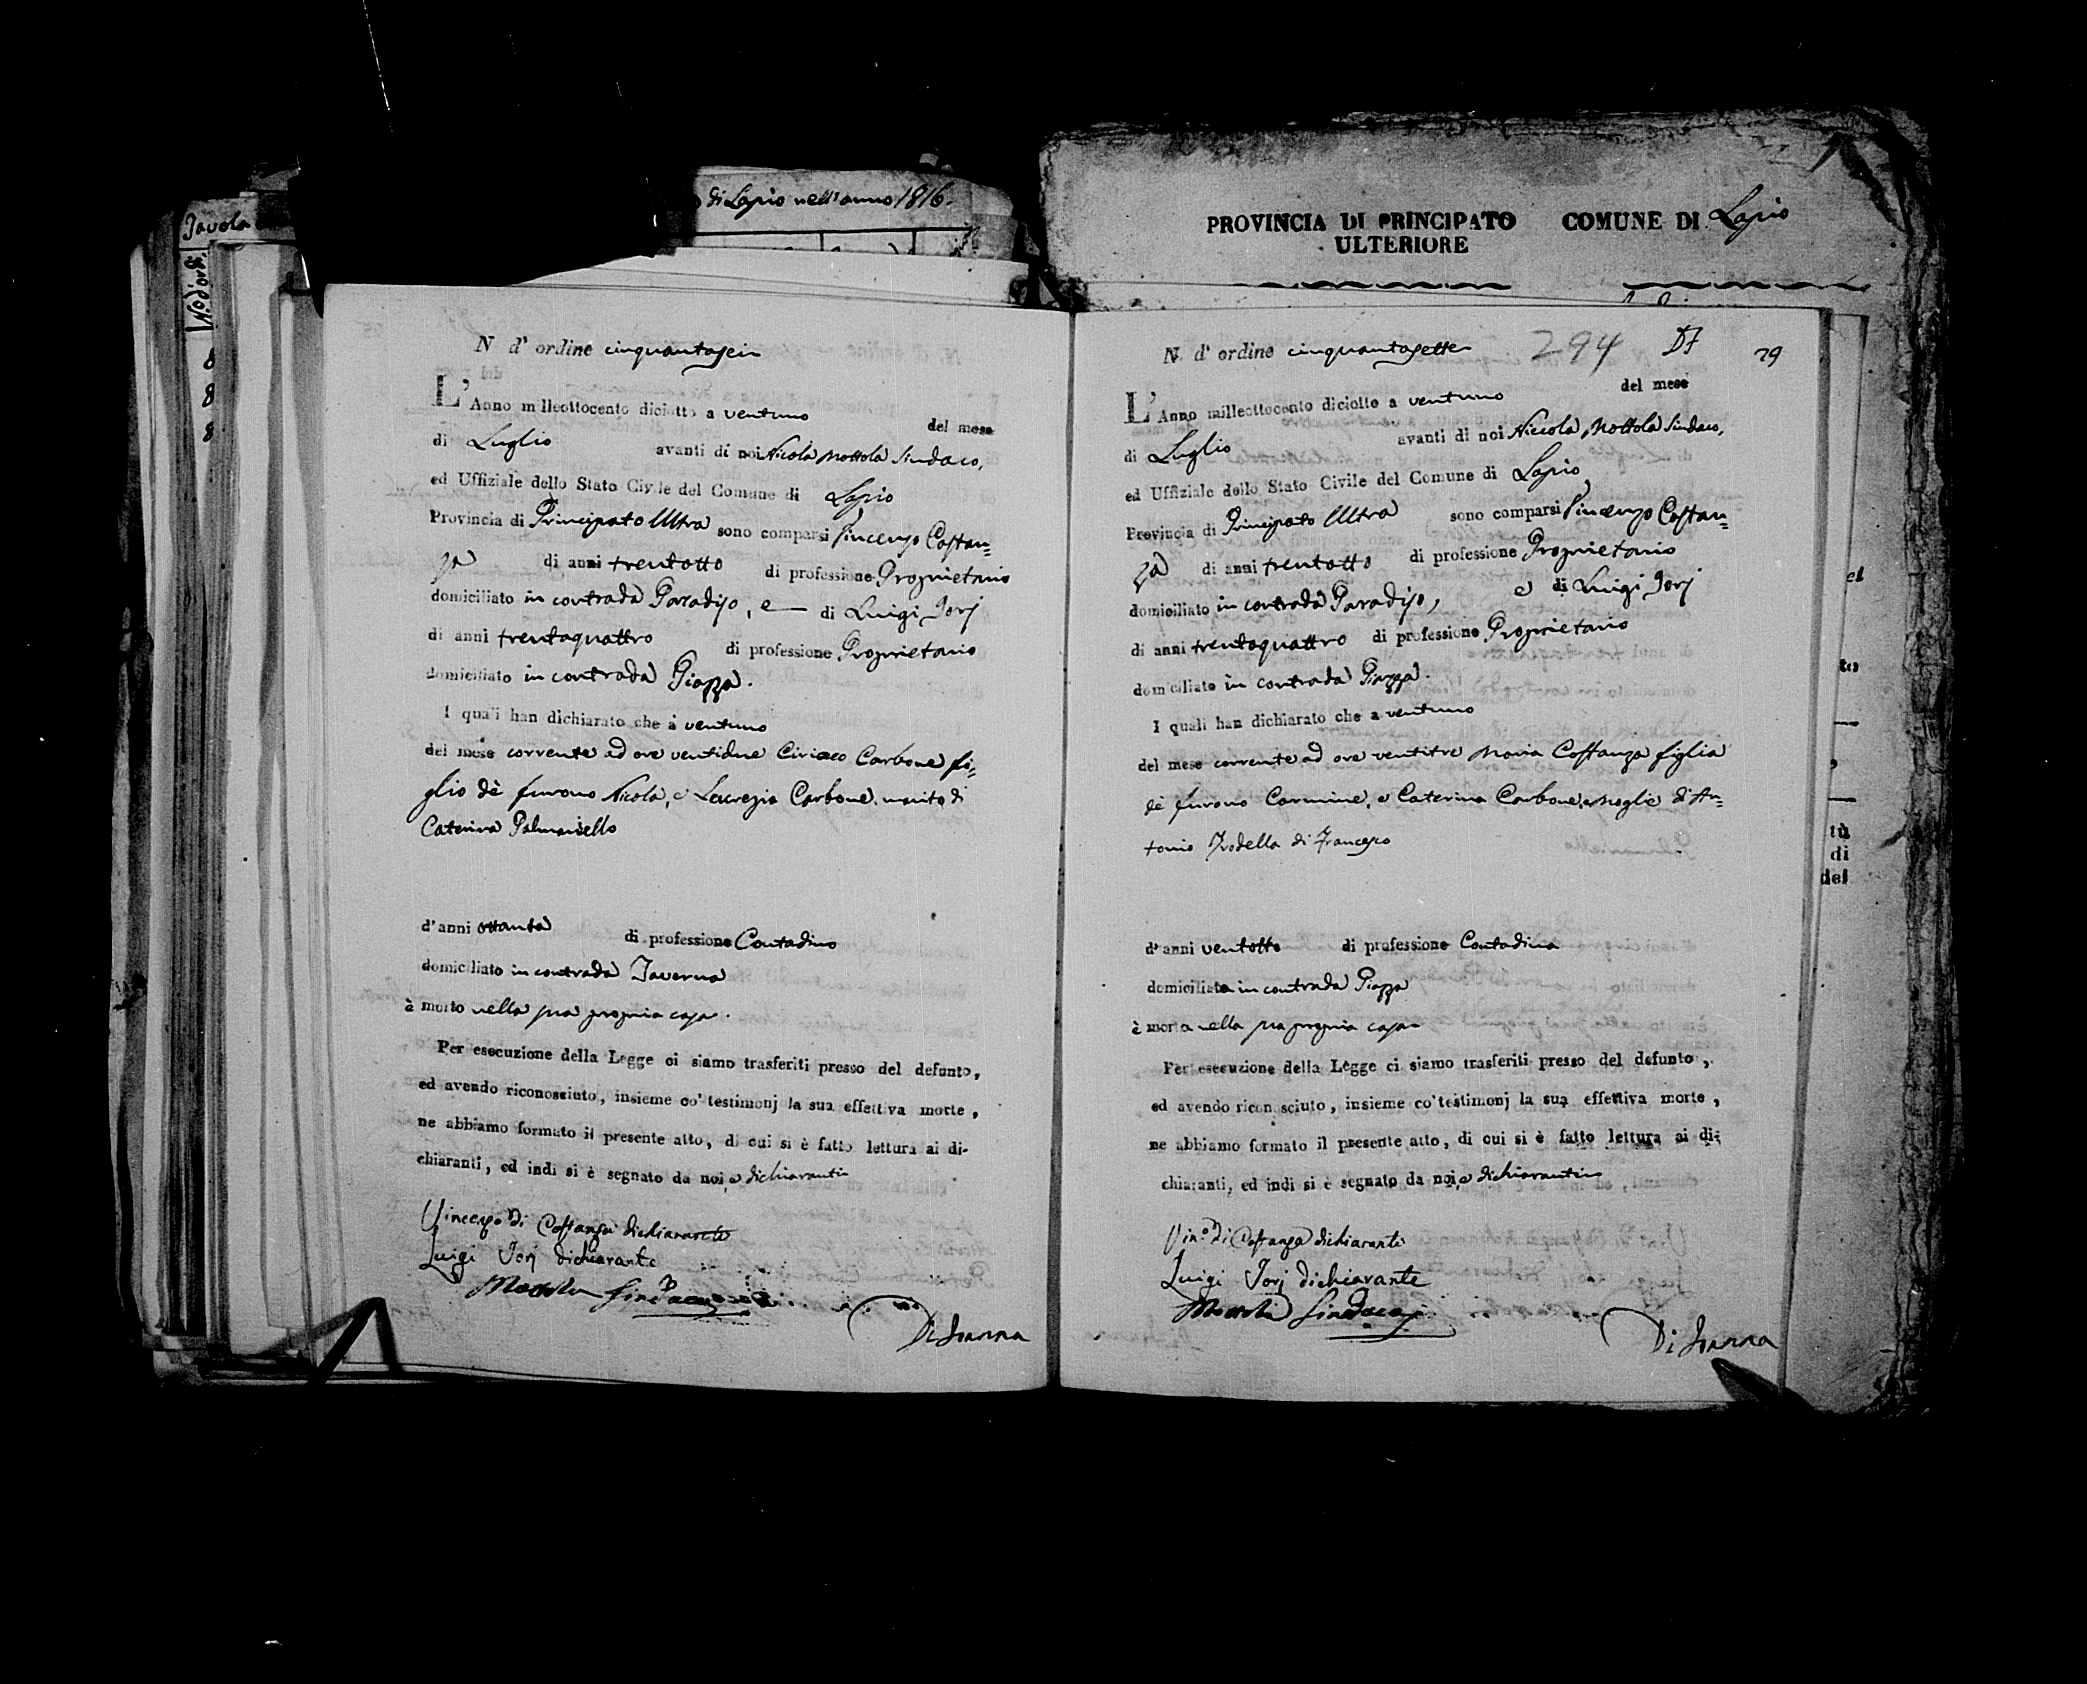 Tavola
di Lapio nell'anno 1816.
N.o d'ord.
8
8
8
PROVINCIA DI PRINCIPATO COMUNE DI Lapio
ULTERIORE
N d' ordine cinquantasei
L'Anno milleottocento diciotto a ventuno del mese
di Luglio avanti di noi Nicola Mottola Sindaco,
ed Uffiziale dello Stato Civile del Comune di Lapio
Provincia di Principato Ultra sono comparsi Vincenzo Costan=
za di anni trentotto di professione Proprietario
domiciliato in contrada Paradiso, e di Luigi Jorj
di anni trentaquattro di professione Proprietario
domiciliato in contrada Piazza.
I quali han dichiarato che a ventuno
del mese corrente ad ore ventidue Ciriaco Carbone fi=
glio dè furono Nicola, e Lucrezia Carbone marito di
Caterina Palmariello
d'anni ottanta di professione Contadino
domiciliato in contrada Taverna
è morto nella sua propria casa.
Per esecuzione della Legge ci siamo trasferiti presso del defunto,
ed avendo riconosciuto, insieme co' testimonj la sua effettiva morte,
ne abbiamo formato il presente atto, di cui si è fatto lettura ai di-
chiaranti, ed indi si è segnato da noi, e dichiaranti
Vincenzo di Costanza dichiarante
Luigi Jorj dichiarante
Mottola Sindaco
Di Ioanna
N. d' ordine cinquantasette 294 29
L'Anno milleottocento diciotto a ventuno del mese
di Luglio avanti di noi Niccola Mottola Sindaco,
ed Uffiziale dello Stato Civile del Comune di Lapio
Provincia di Principato Ultra sono comparsi Vincenzo Costan=
za di anni trentotto di professione Proprietario
domiciliato in contrada Paradiso, e di Luigi Jorj
di anni trentaquattro di professione Proprietario
domiciliato in contrada Piazza.
I quali han dichiarato che a ventuno
del mese corrente ad ore ventitre Maria Costanza figlia
dè furono Carmine, e Caterina Carbone, moglie di An=
tonio Trodella di Francesco
d'anni ventotto di professione Contadina
domiciliata in contrada Piazza
è morta nella sua propria casa
Per esecuzione della Legge ci siamo trasferiti presso del defunto,
ed avendo riconosciuto, insieme co' testimonj la sua effettiva morte,
ne abbiamo formato il presente atto, di cui si è fatto lettura ai di-
chiaranti, ed indi si è segnato da noi, e dichiaranti
Vin.o di Costanza dichiarante
Luigi Jorj dichiarante
Mottola Sindaco
Di Ioanna
el
to
tù
di
del